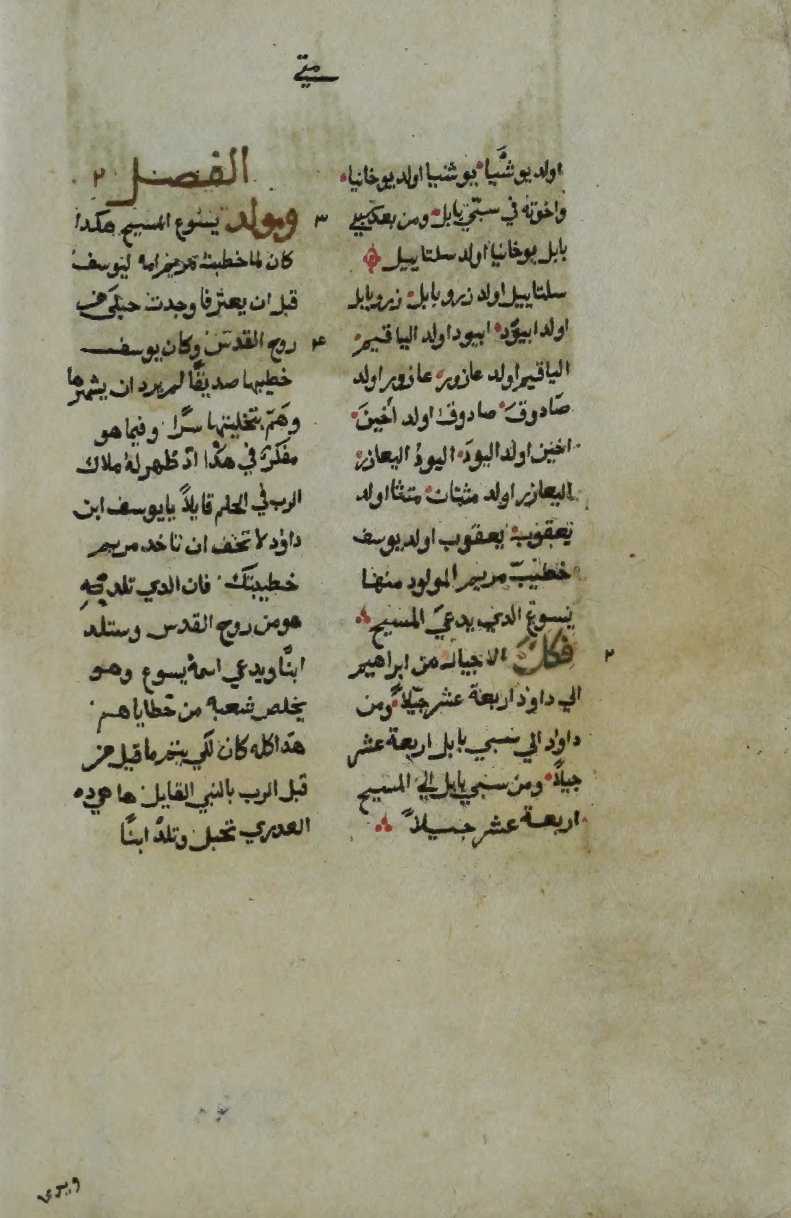 متي
اولد يوشيا يوشيا اولد يوخانيا
واخوته في سبي بابل ومن بعد سبي
بابل يوخانيا اولد سلتاييل
سلتاييل اولد زروبابل زروبابل
اولد ابيود ابيود اولد الياقيم
الياقيم اولد عازور عازور اولد
صادوق صادوق اولد اخين
اخين اولد اليود اليود اليعازر
اليعازر اولد متثان متثا اولد
يعقوب يعقوب اولد يوسف
خطيب مريم المولود منها
يسوع الدي يدعي المسيح
٢ فكل الاجيال من ابراهيم
الي داود اربعة عشر جيلاً ومن
داود الي سبي بابل اربعة عشر
جيلاً ومن سبي بابل الي المسيح
اربعة عشر جيلاً
الفصل ٢
٣ ومولد يسوع المسيح هكدا
كان لما خطبت مريم امه ليوسف
قبل ان يعترفا وجدت حبلي من
٤ روح القدس وكان يوسف
خطيبها صديقًا لم يرد ان يشهرها
وهم بتخليتها سرًا وفيما هو
مفكر في هكدا اد ظهر له ملاك
الرب في الحلم قايلاً يا يوسف ابن
داود لا تخف ان تاخد مريم
خطيبتك فان الدي تلده
هو من روح القدس وستلد
ابنًا ويدعي اسمه يسوع وهو
يخلص شعبه من خطاياهم
هدا كله كان لكي يتم ما قيل من
قبل الرب بالنبي القايل ها هوده
العدري تحبل وتلد ابنًا
ويدعي